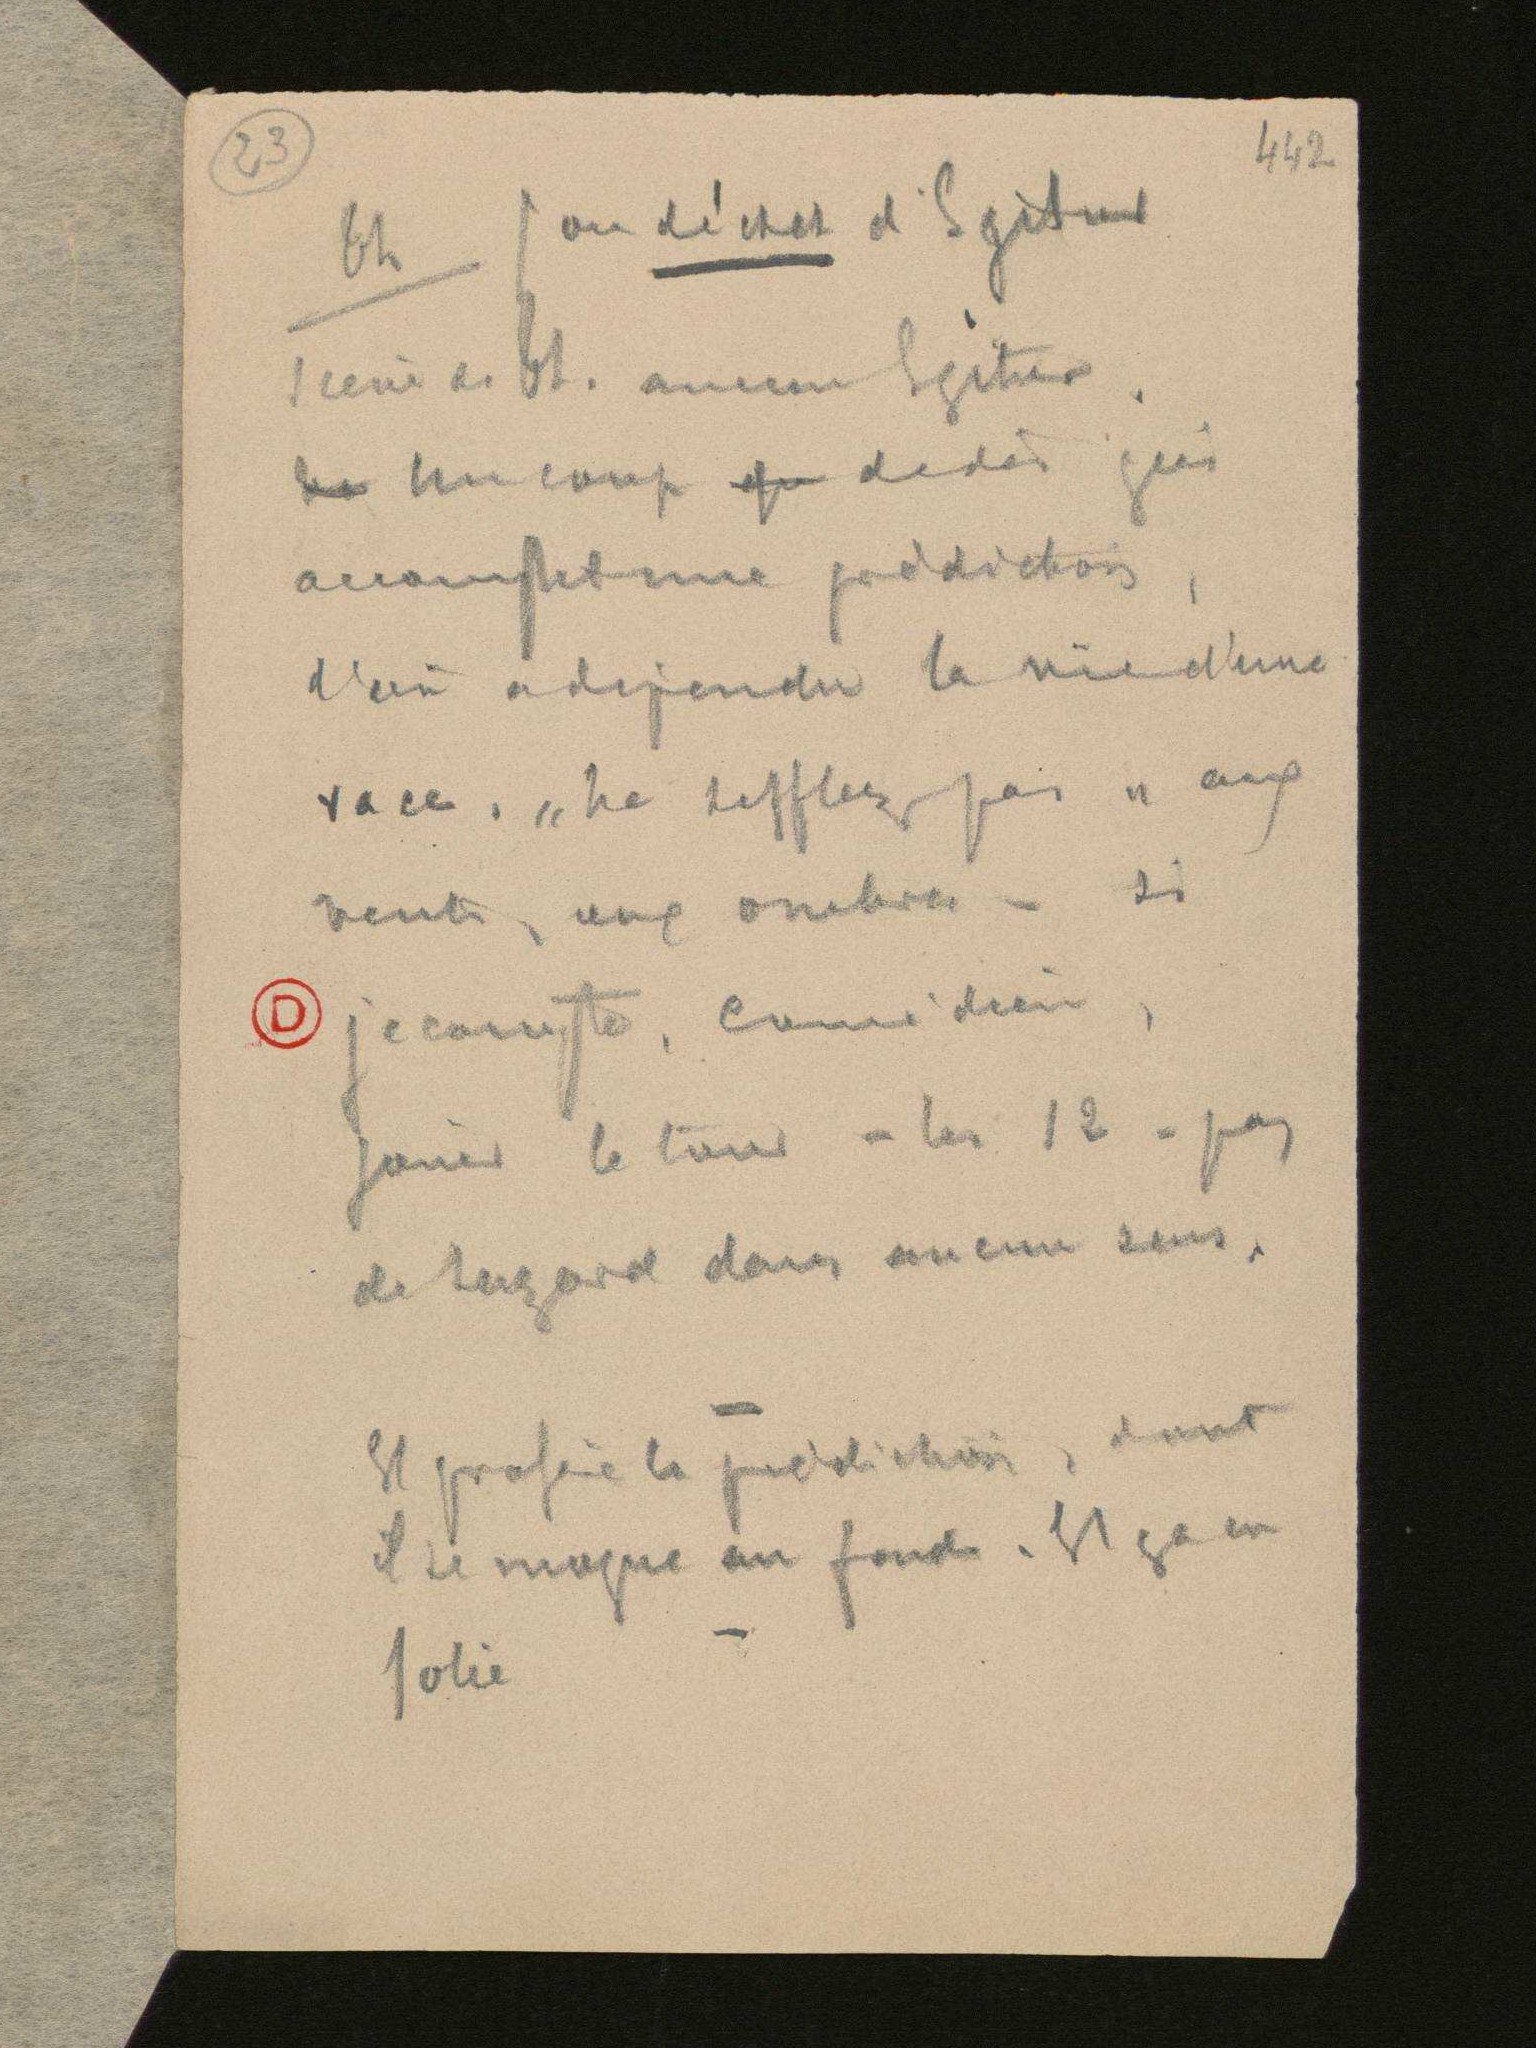 23
442
Th ou déchet d'Igitur
Scène de Th. ancien Igitur.
Un coup de dés qui
accomplit une prédiction,
d'où a dépendu la vie d'une
race. „ Ne sifflez pas „ aux
vents, aux ombres – si
D je compte, comédien,
jouer le tour – les 12 – pas
de hasard dans aucun sens.
–
Il profère la prédiction, dont
il se moque au fond. Il y a eu
folie
–